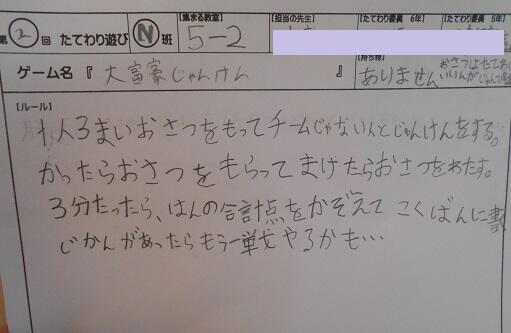 第2回 たてわり遊び N班
集まる教室
5-2
担当の先生
たてわり委員 6年
たてわり委員 5年
ゲーム名『大富豪じゃんけん』
持ち物
ありません
おさつはたてわり
いいんが
【ルール】
1人3まいおさつをもってチームじゃない人とじゃんけんをする。
かったらおさつをもらってまけたらおさつをわたす。
3分たったら、はんの合計点をかぞえてこくばんに書
じかんがあったらもう一戦やるかも…